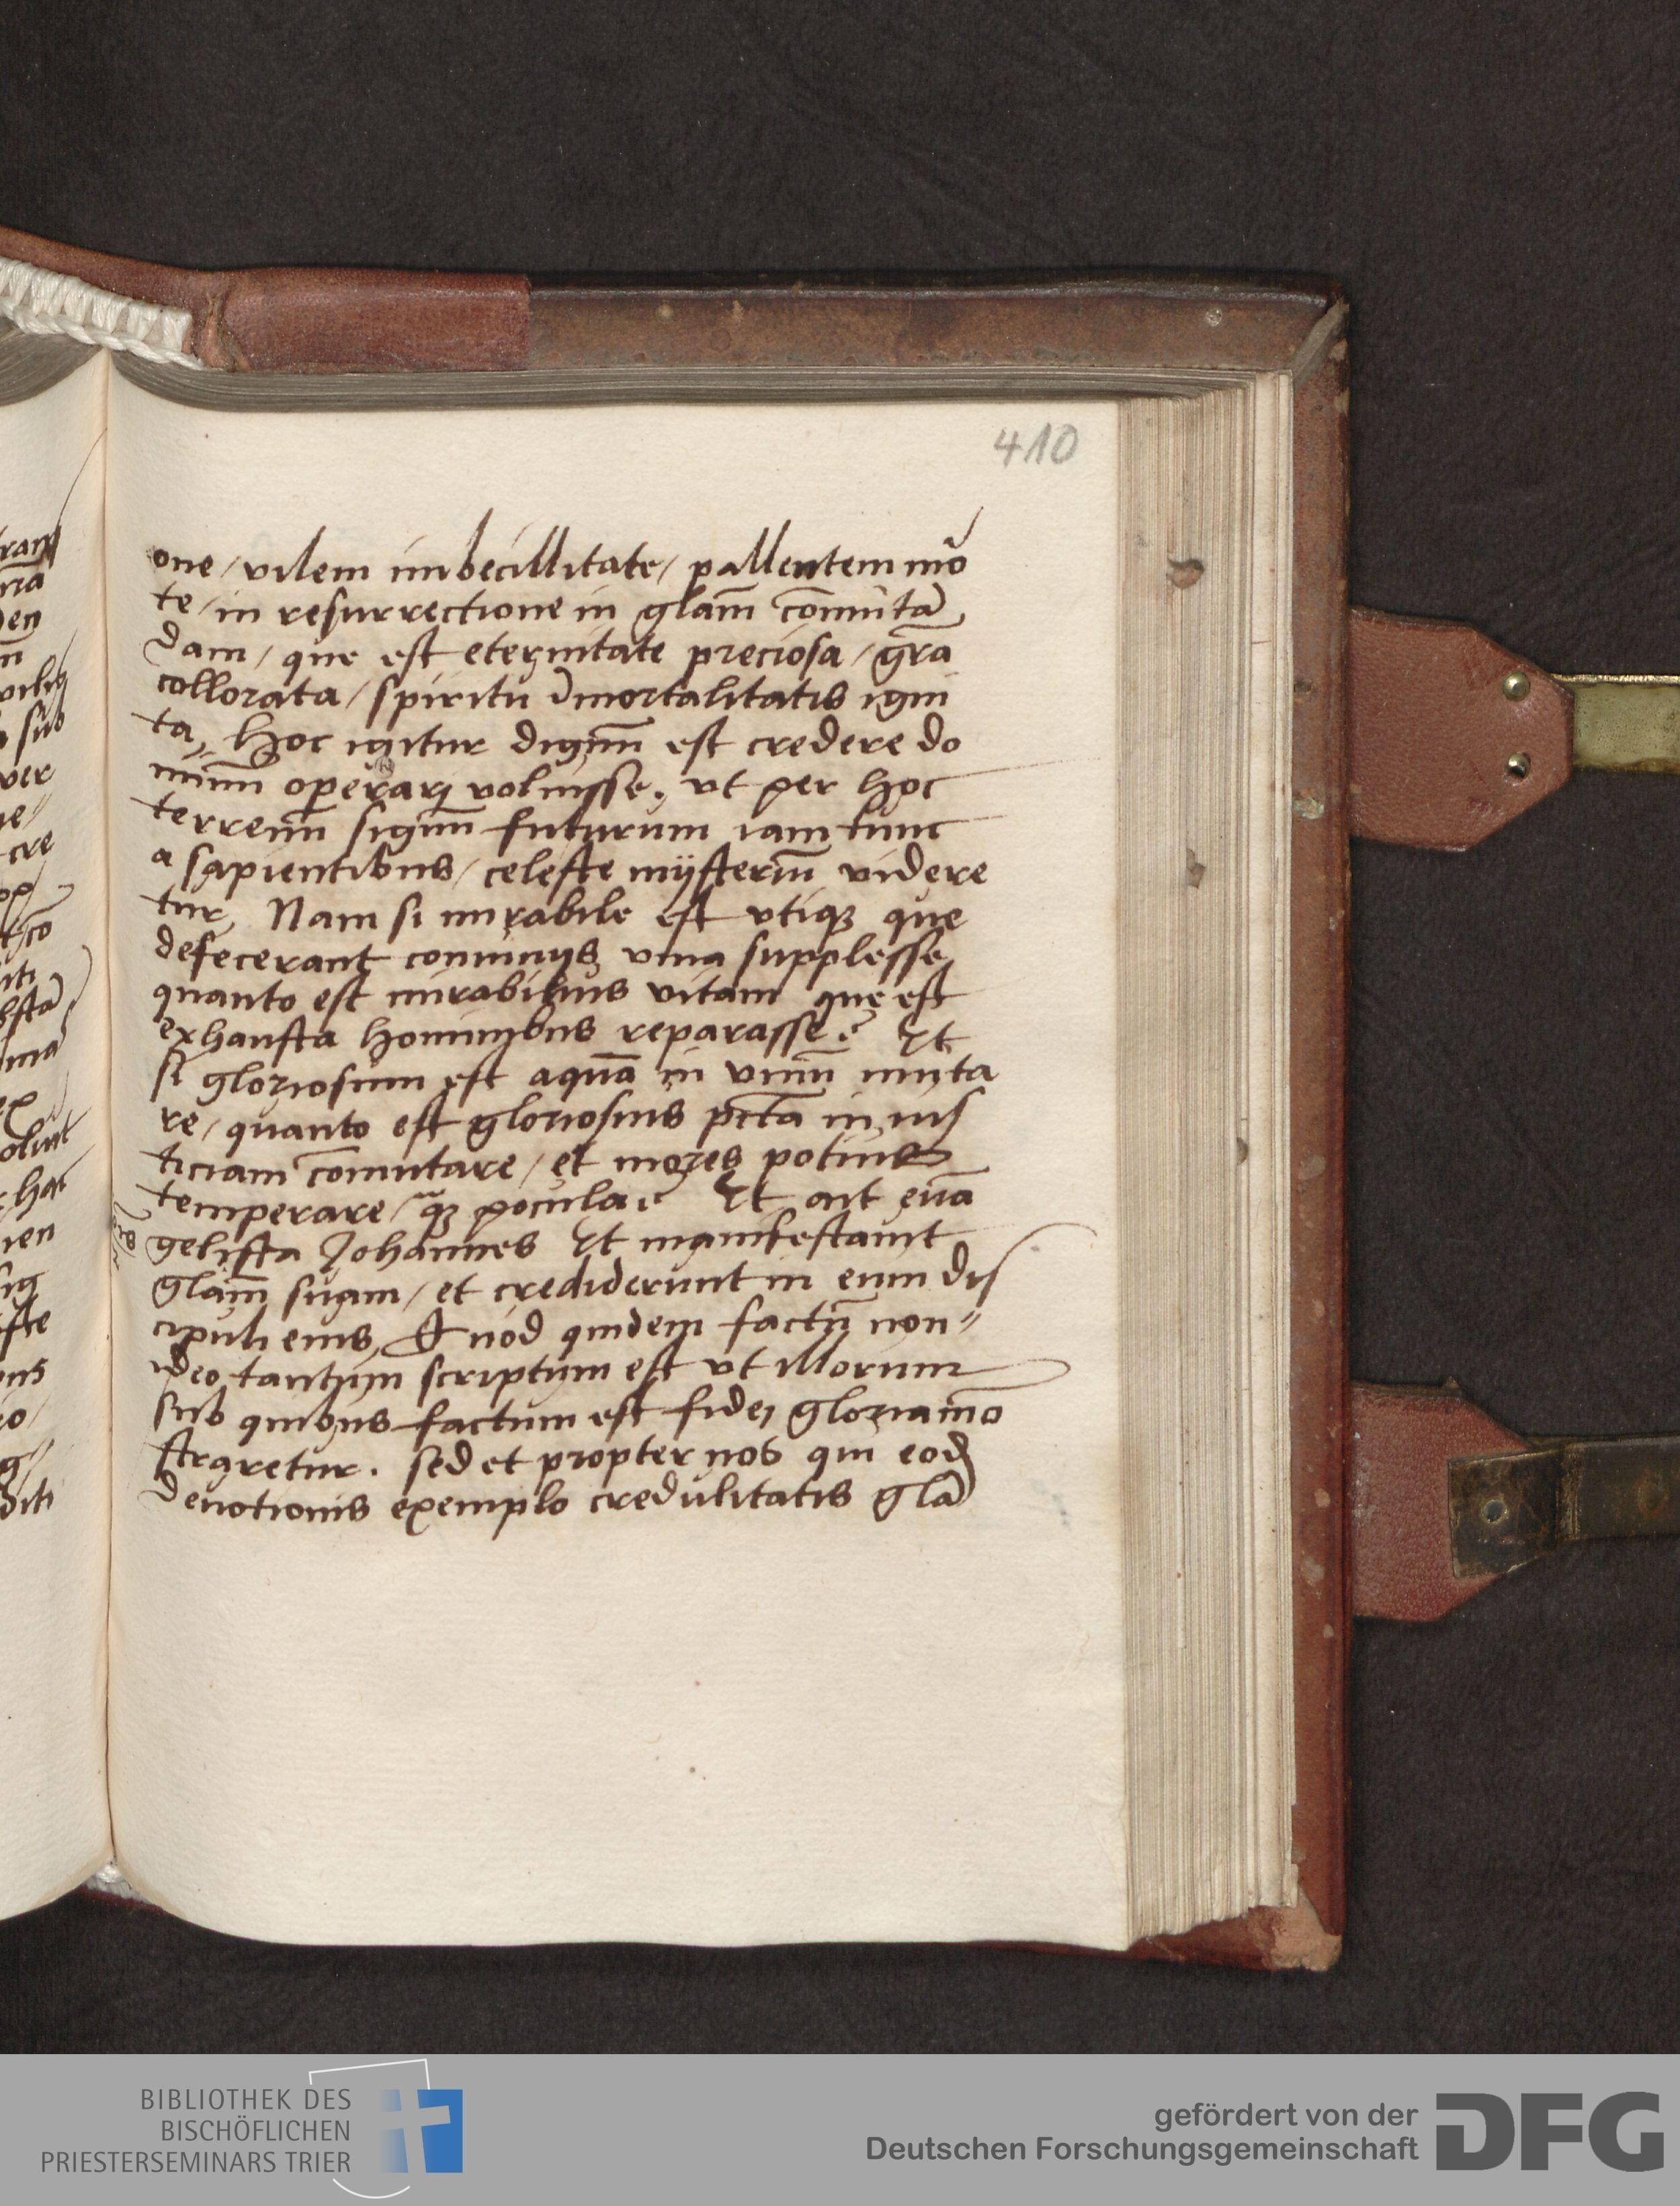 410
one / vilem imbecillitate / pallentem mo᷒
te / in resurrectione in głam̄ com̄utā
dam / que est eternitate preciosa / gr̄a
collorata / spiritu Inmortalitatis igni
ta, Hoc igitur dignū est credere do
minū operari voluisse. vt per hoc
terrenū signū futurum iam tunc
a sapientibus / celeste mÿsteriū videre
tur, Nam si mirabile est vtiqꝫ que
defecerant conuiuijs vina supplesse
quanto est mirabilius vitam que est
exhausta hominibus reparasse? Et
si gloriosum est aquā in vinū muta
re / quanto est gloriosius pctā in ius
ticiam com̄utare / et mores potius
temperare / qꝫ̄ pocula? Et ait euā
gelista Johannes Et manifestauit
glam̄ suam / et crediderunt in eum dis
cipuli eius, Quod quidem factū non⸗
ideo tantum scriptum est vt illorum
sub quibus factum est fidei gloria mō
straretur. sed et propter nos qui eodē
deuotionis exemplo credulitatis glā
BIBLIOTHEK DES
BISCHÖFLICHEN
PRIESTERSEMINARS TRIER
gefördert von der
Deutschen Forschungsgemeinschaft
DFG